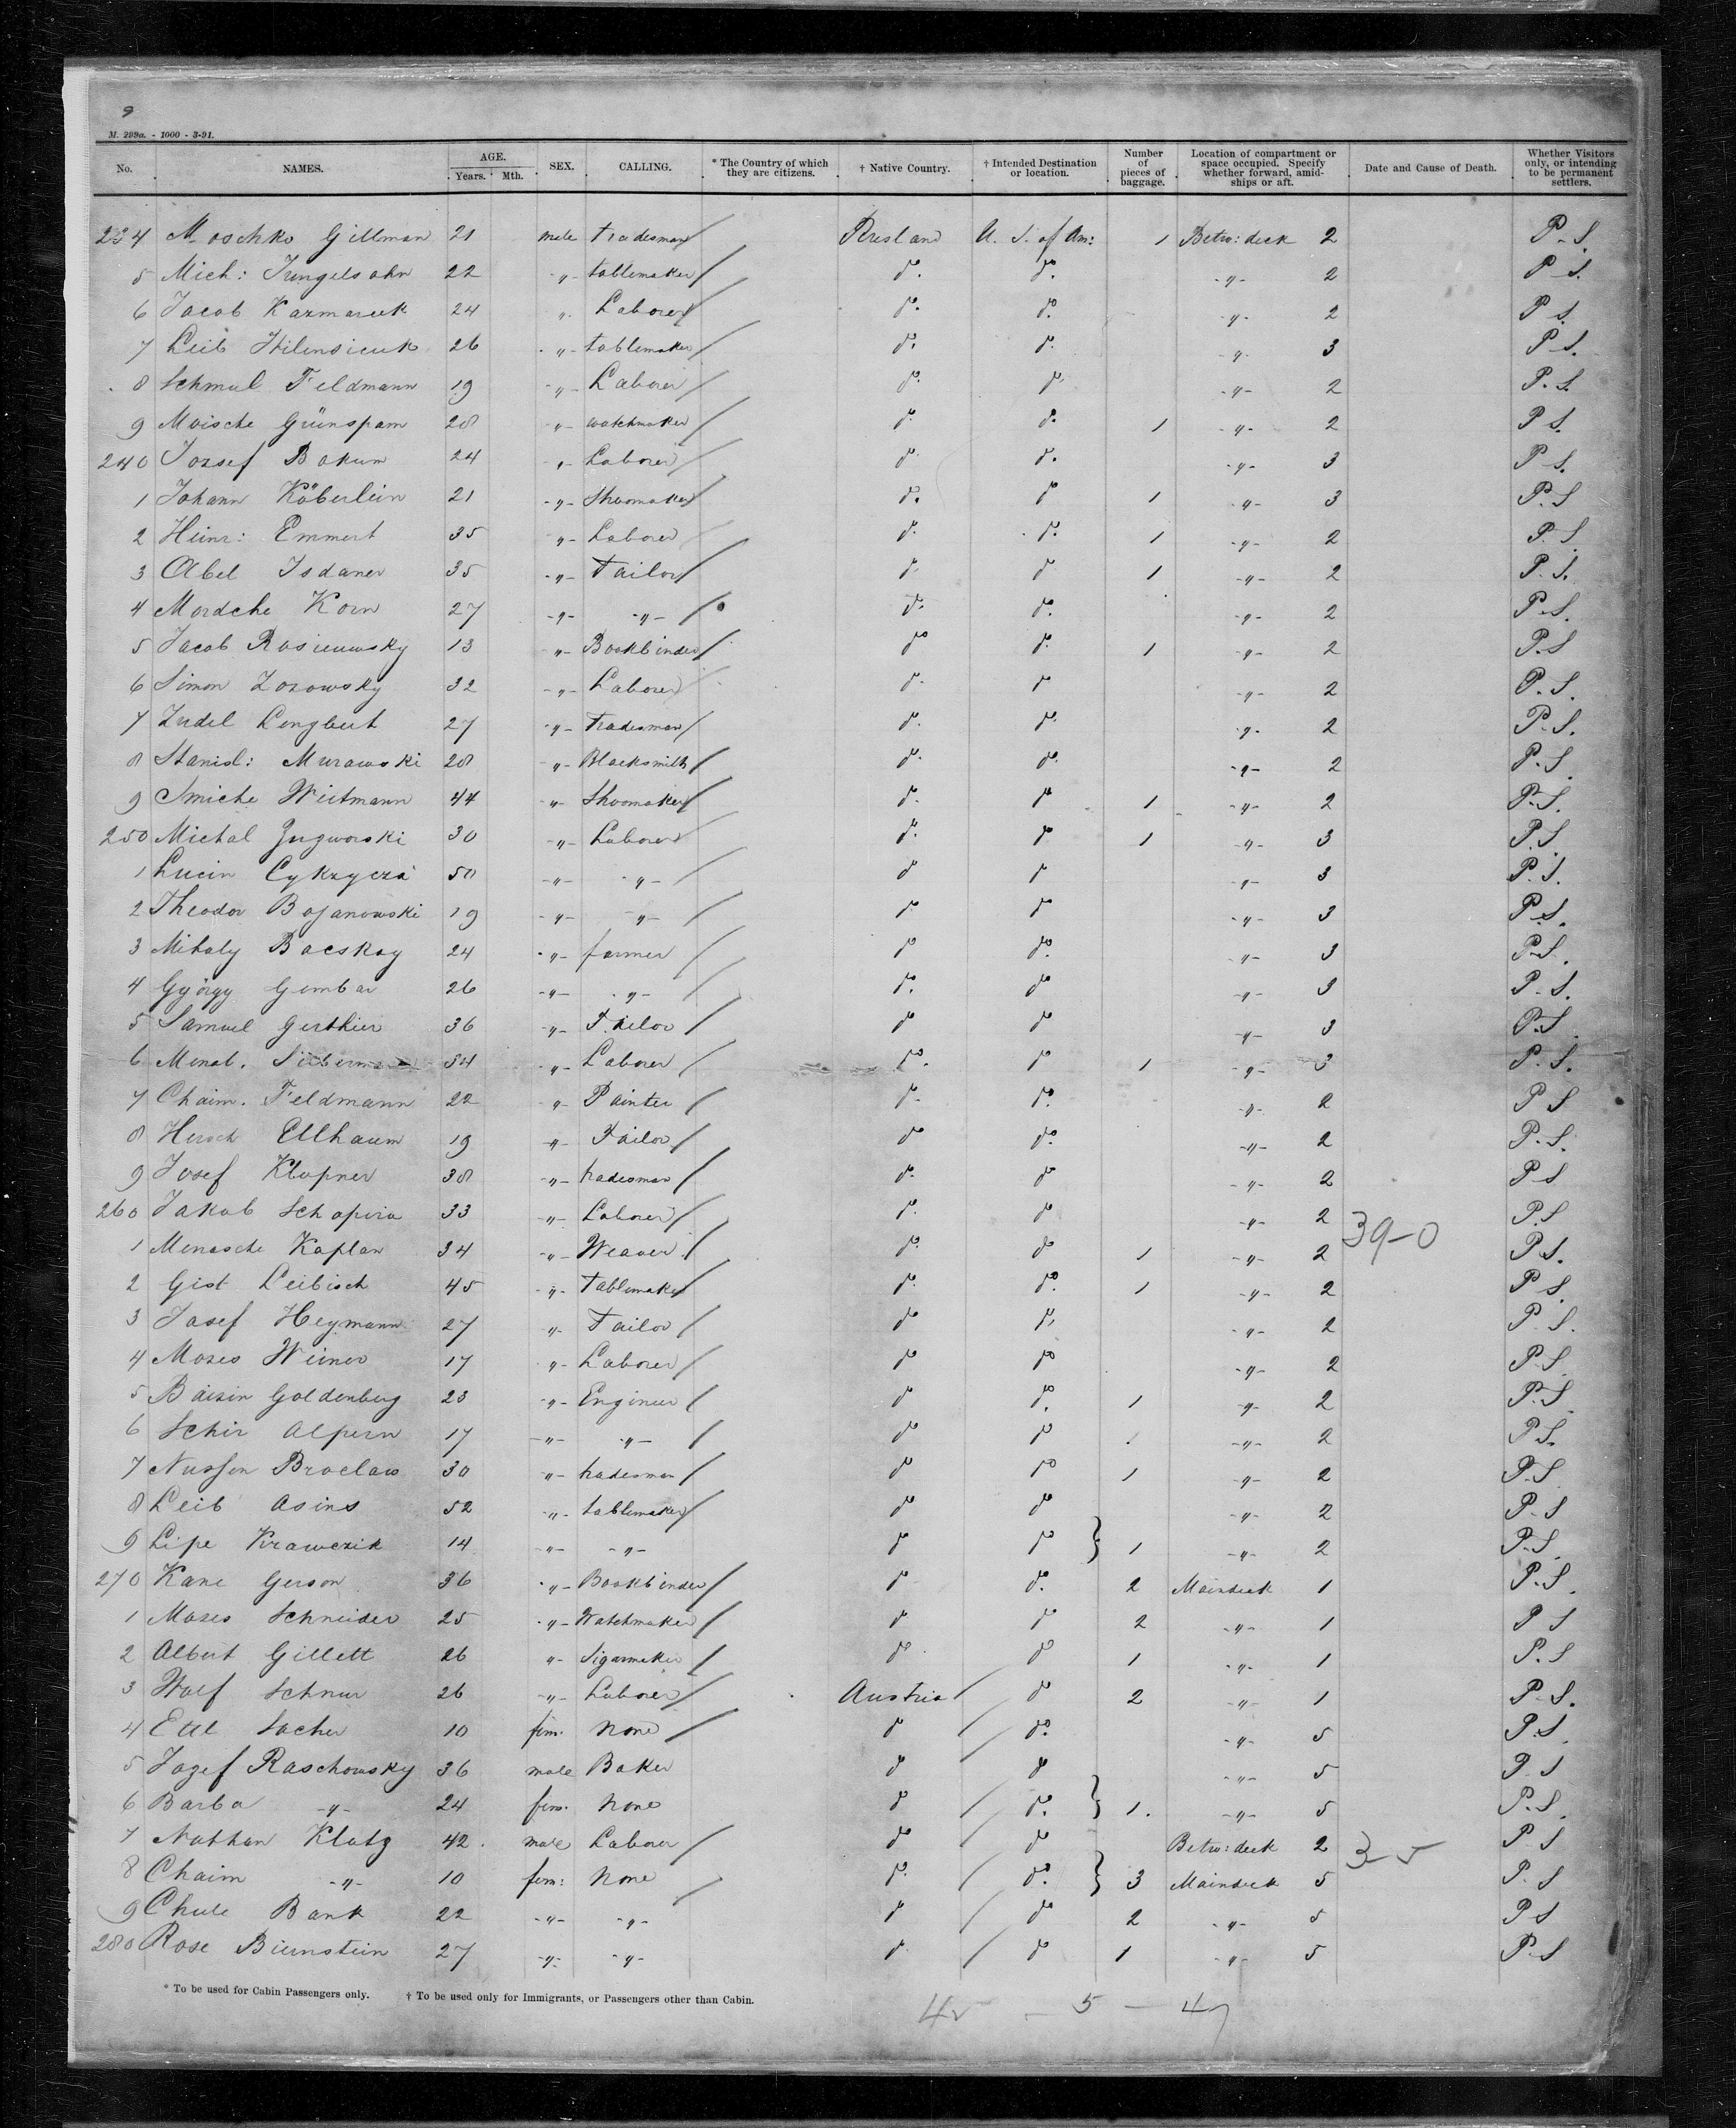 9
M. 299a. - 1000 - 3-91.
No. NAMES. AGE. Years. Mth. SEX. CALLING. * The Country of which they are citizens. † Native Country. † Intended Destination or location. Number of pieces of baggage. Location of compartment or space occupied. Specify whether forward, amidships or aft. Date and Cause of Death. Whether Visitors only, or intending to be permanent settlers.
234 Moschko Gillman 21 male tradesman / Rusland U. S. of Am: 1 Betw: deck 2 P. S.
5 Mich: Jungelsohn 22 -"- tablemaker / do. do. -"- 2 P S.
6 Jacob 24 " Laborer / do. do. -"- 2 P S.
7 Leib 26 -"- tablemaker / do. do. -"- 3 P S.
8 Schmul Feldmann 19 -"- Laborer / do. do. -"- 2 P. S.
9 Moische Grünspam 28 -"- watchmaker / do. do. 1 -"- 2 P S.
240 Jossef Bokum 24 -"- Laborer / do. do. -"- 3 P S.
1 Johann Köberlein 21 -"- Shoomaker / do. do 1 -"- 3 P. S
2 Heinr: Emmert 35 "- Laborer / do. do. 1 -"- 2 P. S
3 Abel Isdaner 35 -"- Tailor / do. do 1 -"- 2 P. S.
4 Mordche Korn 27 -"- -"- / do. do. -"- 2 P. S.
5 Jacob 13 "- Bookbinder / do do. 1 -"- 2 P. S
6 Simon Lozowsky 32 -"- Laborer / do. do -"- 2 P. S.
7 Judel Lengbert 27 -"- Tradesman / do. do. -"- 2 P. S.
8 Stanisl: Murawski 28 "- Blacksmith / do. do. -"- 2 P. S
9 Smiche Weitmann 44 "- Shoomaker / do. do 1 -"- 2 P. S.
250 Michal 30 -"- Laborer / do. do 1 -"- 3 P. S
1 Lucin 50 -"- -"- / do do -"- 3 P. S.
2 Theodor Bojanowski 19 -"- -"- / do do -"- 3 P S.
3 Mihaly Bacskay 24 -"- farmer / do do. -"- 3 P. S.
4 György Gembar 26 -"- -"- / do. do -"- 3 P. S.
5 Samuel Gerthier 36 -"- Tailor / do do -"- 3 P. S
6 34 -"- Laborer / do. do 1 -"- 3 P. S.
7 Chaim. Feldmann 22 -"- Painter / do. do. -"- 2 P S
8 Hersch Ellhaum 19 -"- Tailor / do do. -"- 2 P. S.
9 Josef Klopner 38 -"- tradesman / do. do -"- 2 P S
260 Jakob Schapira 33 -"- Laborer / do. do -"- 2 39-0 P. S
1 Menasche Kaplan 34 -"- Weaver / do. do 1 -"- 2 P S.
2 Gist Leibisch 45 -"- Tablemaker / do. do. 1 -"- 2 P S.
3 Josef Heymann 27 "- Tailor / do do. -"- 2 P S.
4 Moses Weiner 17 -"- Laborer / do do -"- 2 P. S
5 Goldenberg 23 -"- Engineer / do do. 1 -"- 2 P. S
6 Schir Alpern 17 -"- -"- / do do -"- 2 P S.
7 Nusson Broclaw 30 -"- tradesman / do do 1 -"- 2 P. S
8 Leib Asins 52 -"- tablemaker / do do -"- 2 P. S
9 Lipe Krawczik 14 -"- -"- do do } 1 -"- 2 P. S
270 Kane Gerson 36 -"- Bookbinder / do do. 2 Maindeck 1 P. S.
1 Moses Schneider 25 -"- Watchmaker / do do 2 -"- 1 P S
2 Albert Gillett 26 "- Sigarmaker / do do 1 -"- 1 P. S
3 Wolf Schnur 26 -"- Laborer / Austria / do 2 -"- 1 P. S.
4 Ettl Sacher 10 fem. none / do / do. -"- 5 P. S
5 Jozef Raschowsky 36 male Baker do / do -"- 5 P S
6 Barba -"- 24 fem. none do / do. } 1. -"- 5 P. S.
7 Nathan Klotz 42 male Laborer / do do Betw: deck 2 3-5 P S
8 Chaim -"- 10 fem: none / do. / do. } 3 Maindeck 5 P. S
9 Chule Bank 22 -"- -"- do / do 2 -"- 5 P S
280 Rose Biernstein 27 -"- -"- do / do 1 -"- 5 P. S
* To be used for Cabin Passengers only. † To be used only for Immigrants, or Passengers other than Cabin.
42 - 5 - 47